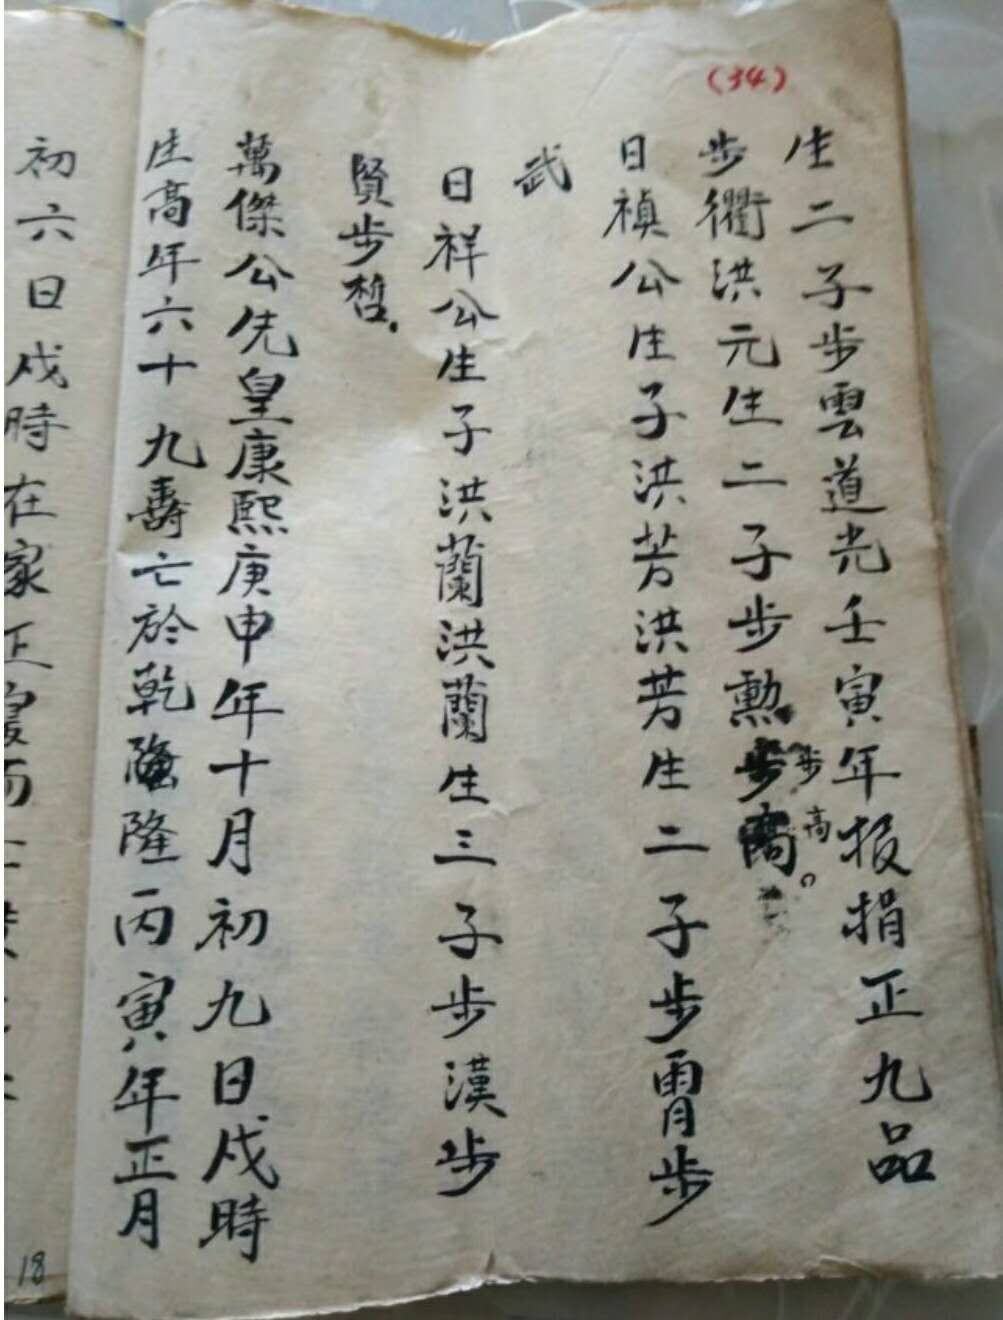 (34)
生二子步雲道光壬寅年报捐正九品
步衢洪元生二子步勲步高。
步高
日禎公生子洪芳洪芳生二子步胃步
武
日祥公生子洪蘭洪蘭生三子步漢步
賢步哲.
萬傑公先皇康熙庚申年十月初九日戌時
生高年六十九壽亡於乾隆丙寅年正月
初六日戌時在家正寝而
18